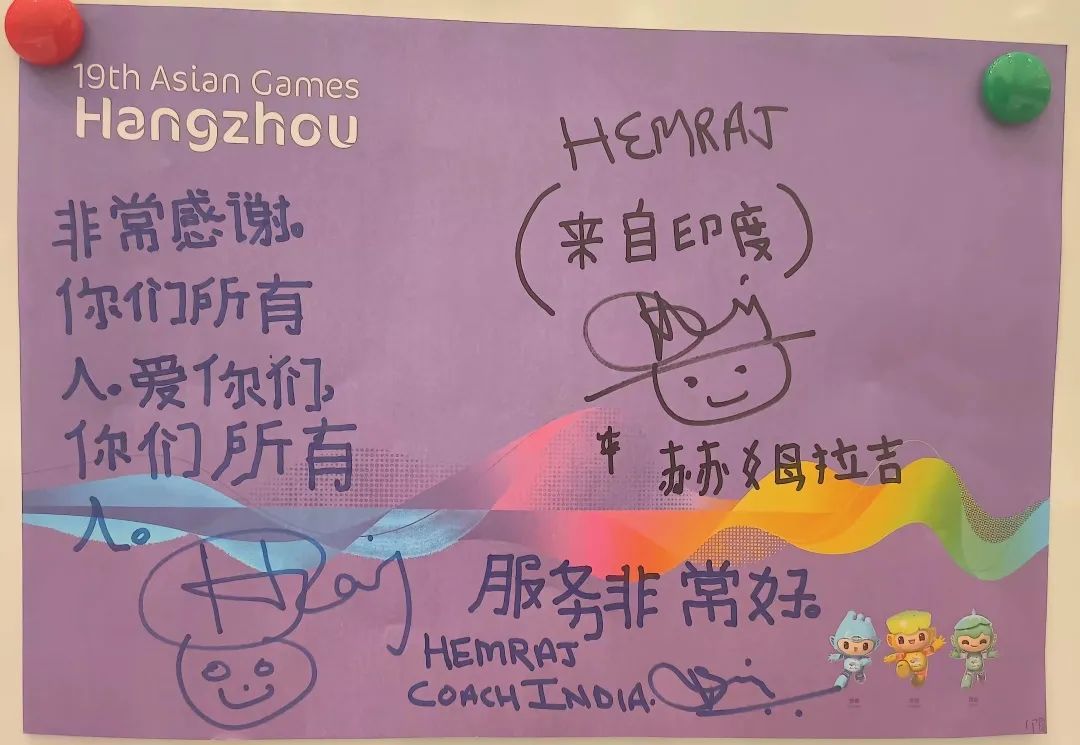 19th Asian Games
Hangzhou
非常感谢。
你们所有
人。爱你们,
你们所有
人。
HEMRAJ
(来自印度)
赫姆拉吉
服务非常好。
HEMRAJ
COACH INDIA.